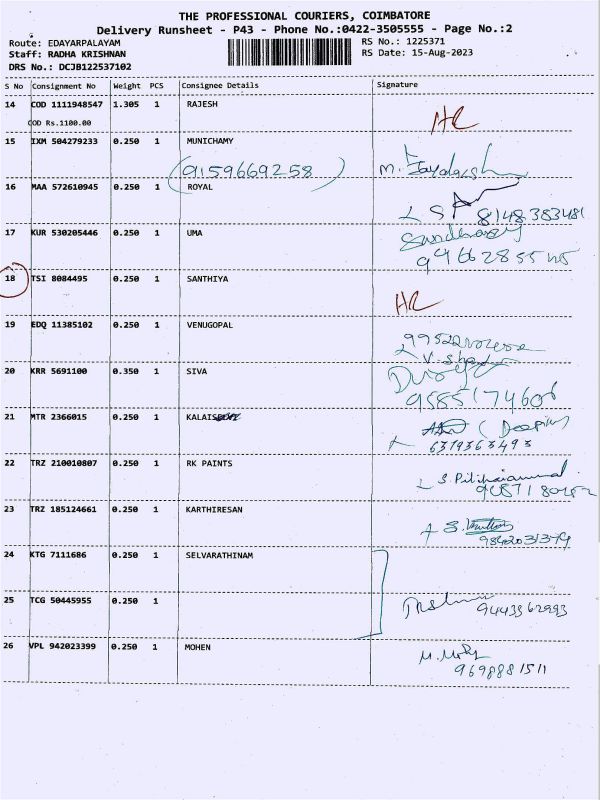 THE PROFESSIONAL COURIERS, COIMBATORE
Delivery Runsheet - P43 - Phone No.:0422-3505555 - Page No.:2
Route: EDAYARPALAYAM RS No.: 1225371
Staff: RADHA KRISHNAN RS Date: 15-Aug-2023
DRS No.: DCJB122537102
S No Consignment No Weight PCS Consignee Details Signature
14 COD 1111948547 1.305 1 RAJESH
COD Rs.1100.00
15 IXM 504279233 0.250 1 MUNICHAMY
(9159669258)
16 MAA 572610945 0.250 1 ROYAL
8148383481
17 KUR 530205446 0.250 1 UMA
18 TSI 8084495 0.250 1 SANTHIYA
19 EDQ 11385102 0.250 1 VENUGOPAL
20 KRR 5691100 0.350 1 SIVA
9585174606
21 MTR 2366015 0.250 1
6379363493
22 TRZ 210010807 0.250 1 RK PAINTS
23 TRZ 185124661 0.250 1 KARTHIRESAN
24 KTG 7111686 0.250 1 SELVARATHINAM
25 TCG 50445955 0.250 1
9443362993
26 VPL 942023399 0.250 1 MOHEN
9698881511